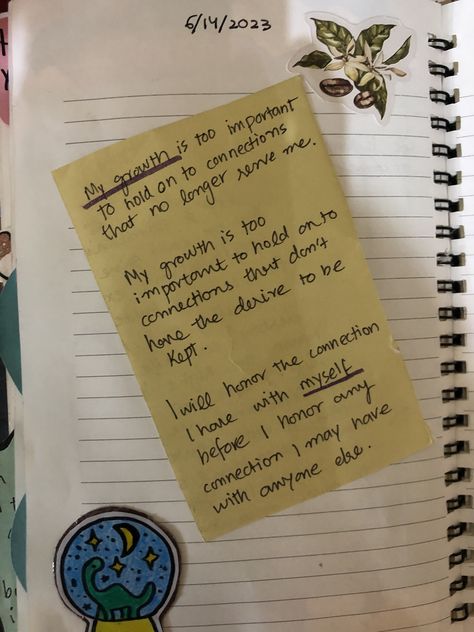 6/14/2023
My growth is too important
to hold on to connections
that no longer serve me.
My growth is too
important to hold on to
connections that don't
have the desire to be
kept.
I will honor the connection
I have with myself
before I honor any
connection I may have
with anyone else.